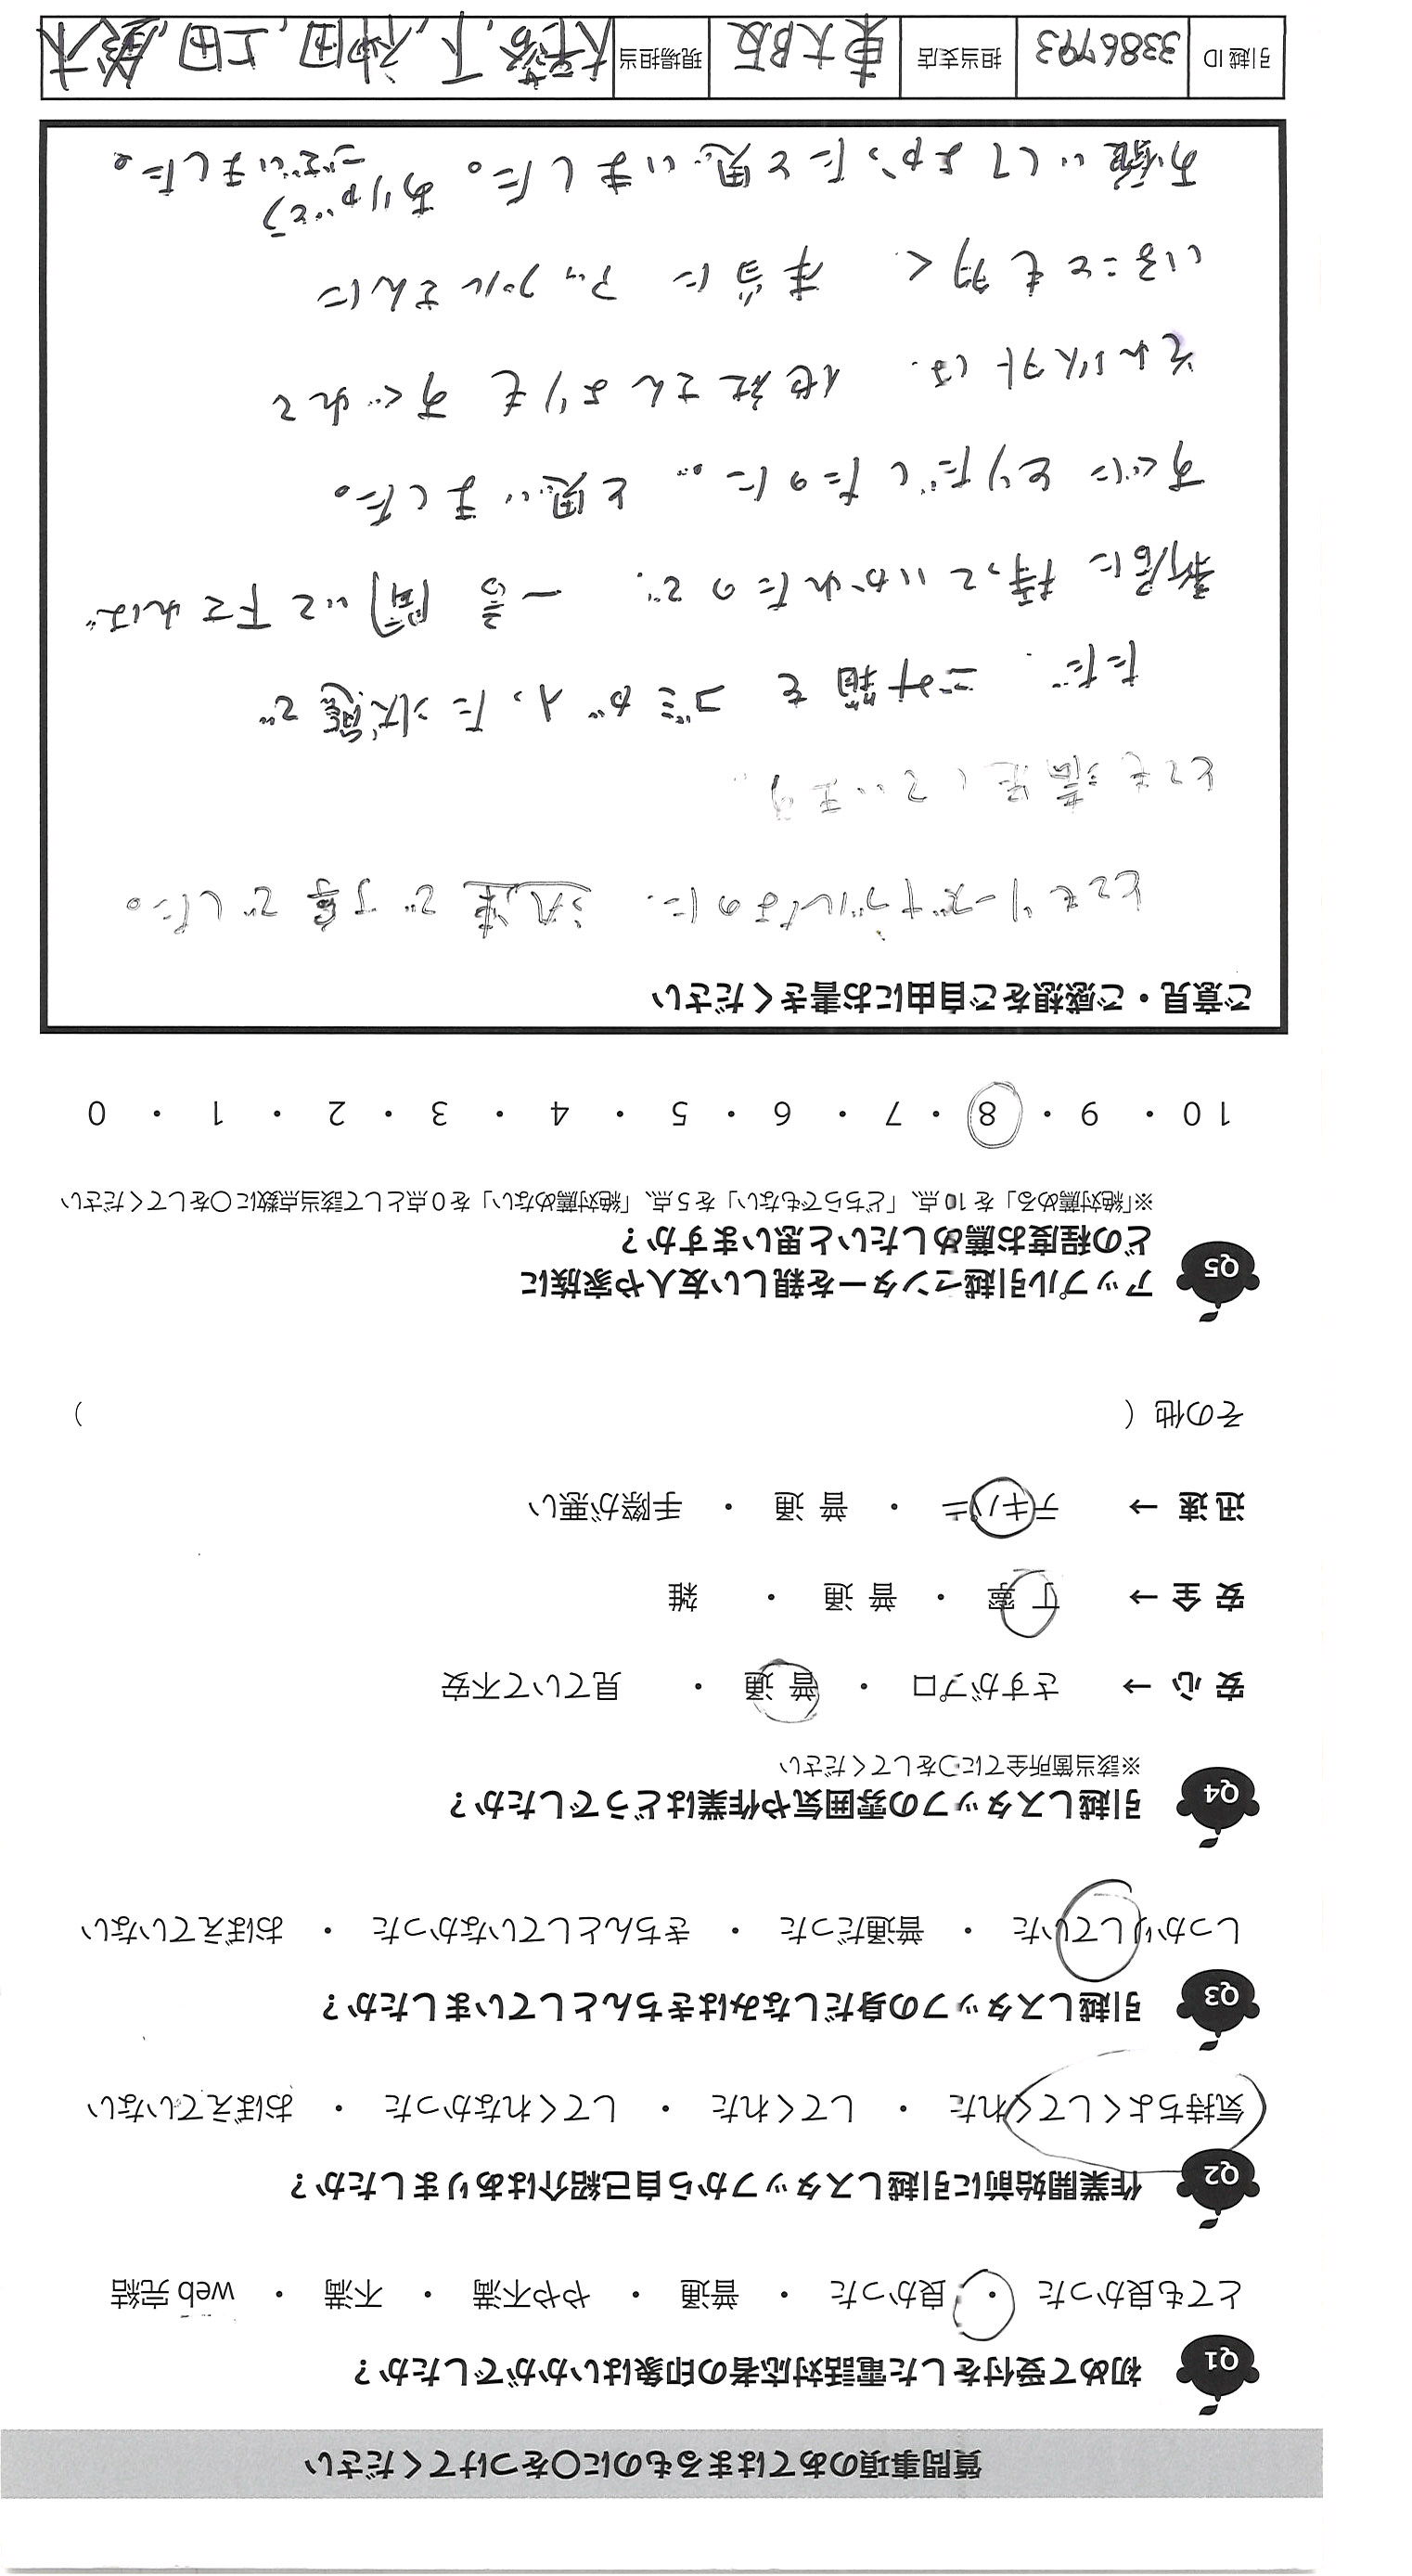 質問事項のあてはまるものに○をつけてください
Q1 初めて受付をした電話対応者の印象はいかがでしたか？
とても良かった ・ 良かった ・ 普通 ・ やや不満 ・ 不満 ・ web 完結
Q2 作業開始前に引越しスタッフから自己紹介はありましたか？
気持ちよくしてくれた ・ してくれた ・ してくれなかった ・ おぼえていない
Q3 引越しスタッフの身だしなみはきちんとしていましたか？
しっかりしていた ・ 普通だった ・ きちんとしていなかった ・ おぼえていない
Q4 引越しスタッフの雰囲気や作業はどうでしたか？
※該当箇所全てに○をしてください
安 心 → さすがプロ ・ 普 通 ・ 見ていて不安
安 全 → 丁 寧 ・ 普 通 ・ 雑
迅 速 → テキパキ ・ 普 通 ・ 手際が悪い
その他（ ）
Q5 アップル引越センターを親しい友人や家族に
どの程度お薦めしたいと思いますか？
※「絶対薦める」を 10 点、「どちらでもない」を 5 点、「絶対薦めない」を 0 点として該当点数に○をしてください
10 ・ 9 ・ 8 ・ 7 ・ 6 ・ 5 ・ 4 ・ 3 ・ 2 ・ 1 ・ 0
ご意見・ご感想をご自由にお書きください
とてもリーズナブルなのに、迅速で丁寧でした。
とても満足しています。
ただ、ゴミ箱を ゴミが入った状態で
新居に 持っていかれたので、一言 聞いて下されば
すぐに とりだしたのに… と思いました。
それ以外は、他社さんよりも すぐれて
いることも多く、本当に アップルさんに
お願いしてよかったと思いました。ありがとう
ございました。
引越 ID 3386793 担当支店 東大阪 現場担当 下,神田,上田,鈴木